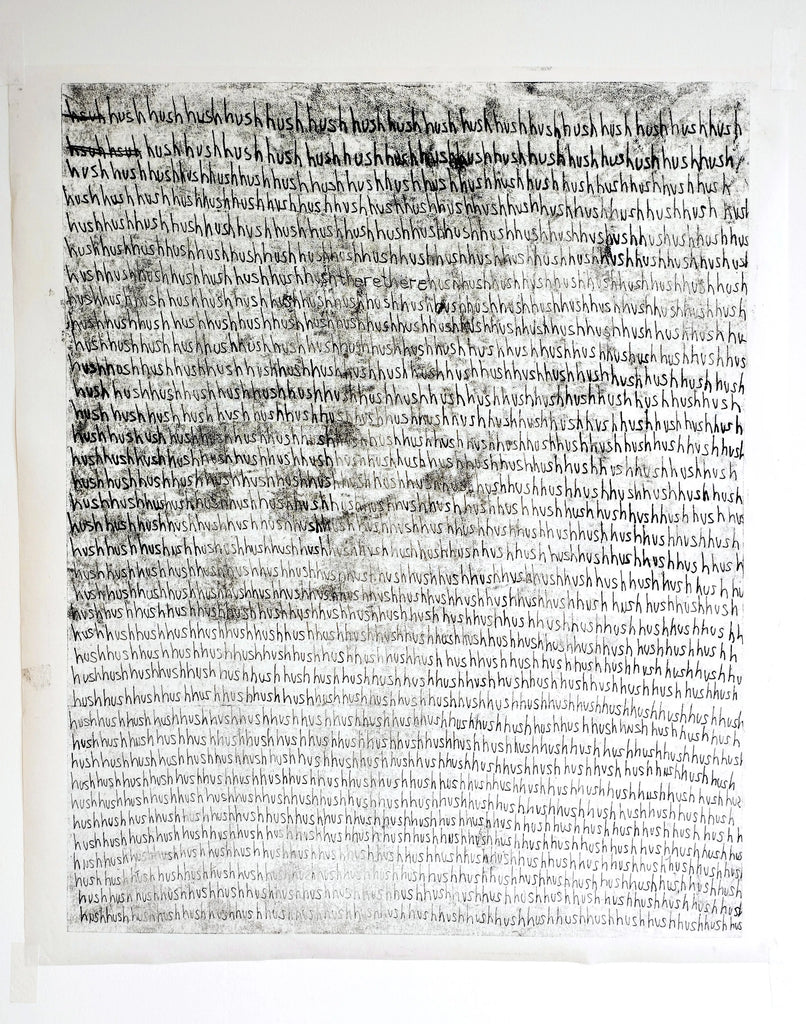 hsuhhushhushhushhushhushhushhushhushhushhushhushhushhushhushhushhushhush
hsuhhsuhhushhushhushhushhushhushhushhushhushhushhushhushhushhushhushhush
hushhushhushhushhushhushhushhushhushhushhushhushhushhushhushhushhushhush
hushhushhushhushhushhushhushhushhushhushhushhushhushhushhushhushhushhushhush
hushhushhushhushhushhushhushhushhushhushhushhushhushhushhushhushhushhushhus
hushhushhushhushhushhushhushhushhushhushhushhushhushhushhushhushhushhushhush
hushhushhushhushhushhushhushtheretherehushhushhushhushhushhushhushhushhushhush
hushhushhushhushhushhushhushhushhushhushhushhushhushhushhushhushhushhushhush
hushhushhushhushhushhushhushhushhushhushhushhushhushhushhushhushhushhushhu
hushhushhushhushhushhushhushhushhushhushhushhushhushhushhushhushhushhushhus
hushhushhushhushhushhushhushhushhushhushhushhushhushhushhushhushhushhushhush
hushhushhushhushhushhushhushhushhushhushhushhushhushhushhushhushhushhushhush
hushhushhushhushhushhushhushhushhushhushhushhushhushhushhushhushhushhushhush
hushhushhushhushhushhushhushhushhushhushhushhushhushhushhushhushhushhushhush
hushhushhushhushhushhushhushhushhushhushhushhushhushhushhushhushhushhushhush
hushhushhushhushhushhushhushhushhushhushhushhushhushhushhushhushhushhushhush
hushhushhushhushhushhushhushhushhushhushhushhushhushhushhushhushhushhushhush
hushhushhushhushhushhushhushhushhushhushhushhushhushhushhushhushhushhushhush
hushhushhushhushhushhushhushhushhushhushhushhushhushhushhushhushhushhushh
hushhushhushhushhushhushhushhushhushhushhushhushhushhushhushhushhushhushhushhu
hushhushhushhushhushhushhushhushhushhushhushhushhushhushhushhushhushhushhushhush
hushhushhushhushhushhushhushhushhushhushhushhushhushhushhushhushhushhushhushhush
hushhushhushhushhushhushhushhushhushhushhushhushhushhushhushhushhushhushhushh
hushhushhushhushhushhushhushhushhushhushhushhushhushhushhushhushhushhushhushhu
hushhushhushhushhushhushhushhushhushhushhushhushhushhushhushhushhushhushhushhush
hushhushhushhushhushhushhushhushhushhushhushhushhushhushhushhushhushhushhushhush
hushhushhushhushhushhushhushhushhushhushhushhushhushhushhushhushhushhushhushhush
hushhushhushhushhushhushhushhushhushhushhushhushhushhushhushhushhushhushhushhush
hushhushhushhushhushhushhushhushhushhushhushhushhushhushhushhushhushhushhushhush
hushhushhushhushhushhushhushhushhushhushhushhushhushhushhushhushhushhushhushhus
hushhushhushhushhushhushhushhushhushhushhushhushhushhushhushhushhushhushhushhush
hushhushhushhushhushhushhushhushhushhushhushhushhushhushhushhushhushhushhushhushh
hushhushhushhushhushhushhushhushhushhushhushhushhushhushhushhushhushhushhushhu
hushhushhushhushhushhushhushhushhushhushhushhushhushhushhushhushhushhushhushhus
hushhushhushhushhushhushhushhushhushhushhushhushhushhushhushhushhushhushhushhush
hushhushhushhushhushhushhushhushhushhushhushhushhushhushhushhushhushhushhushhush
hushhushhushhushhushhushhushhushhushhushhushhushhushhushhushhushhushhushhushhus